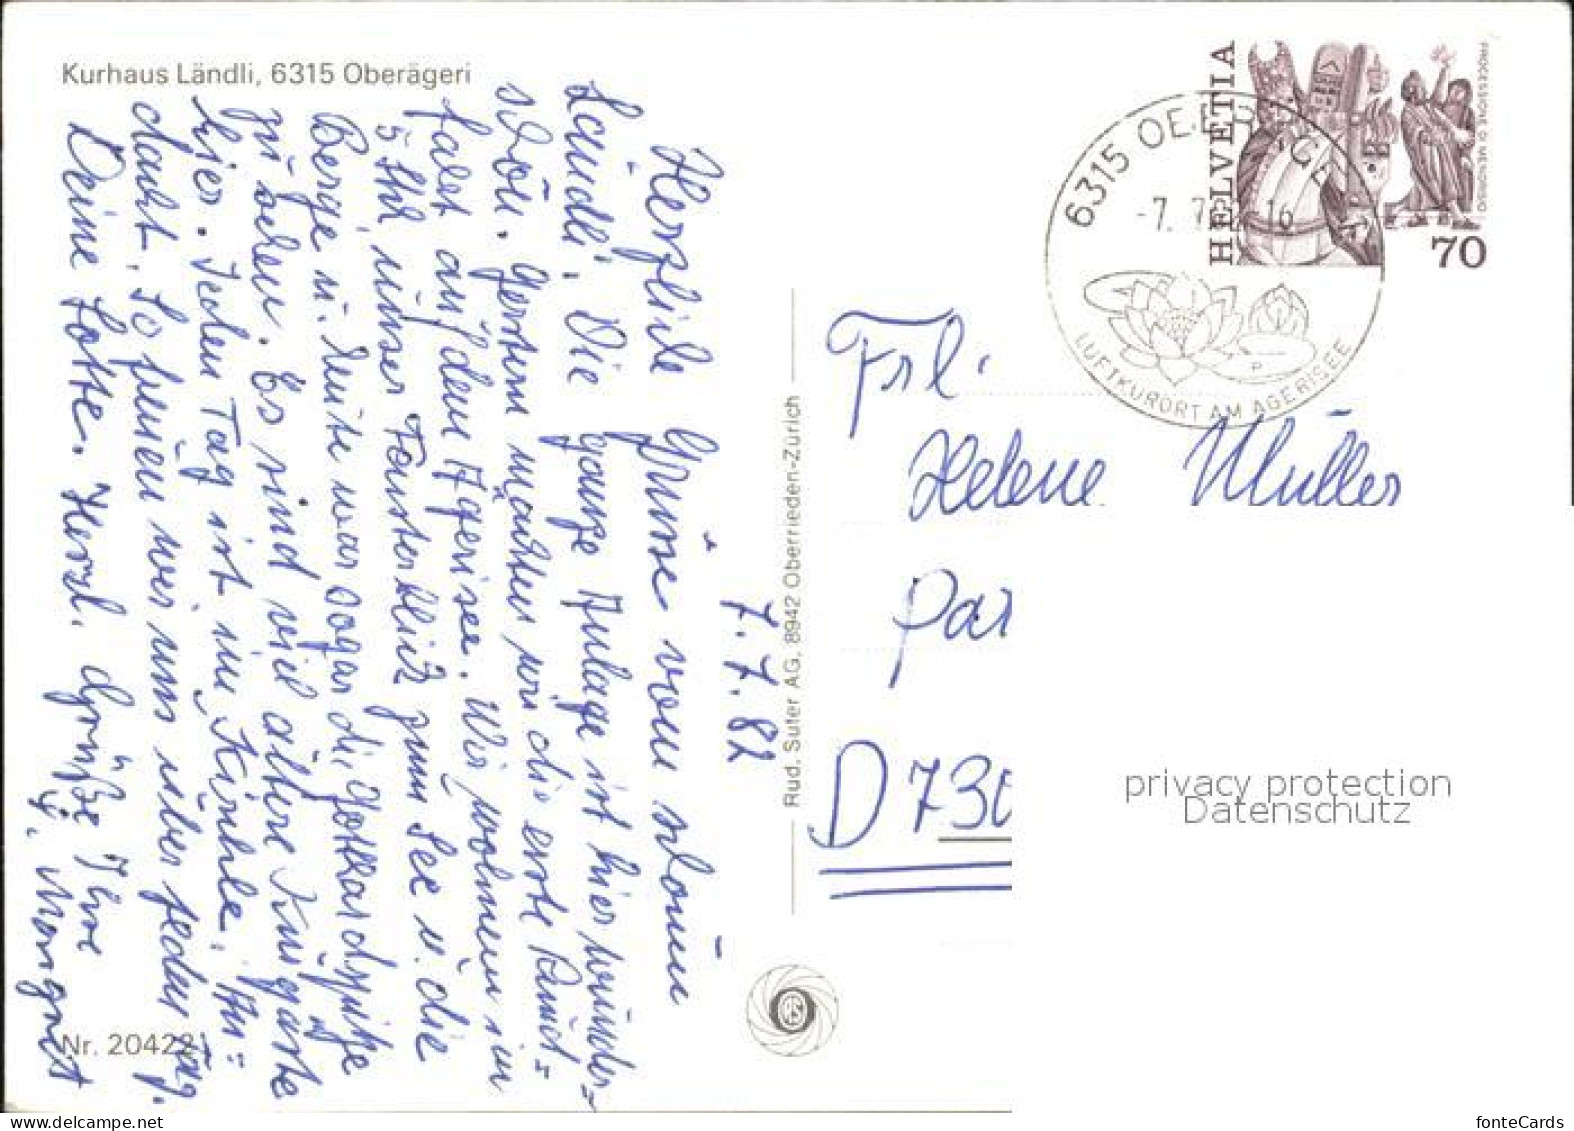 Kurhaus Ländli, 6315 Oberägeri
7.7.82
Herzliche Grüße vom schönen
Ländli. Die ganze Anlage ist hier wunder=
schön. Gestern machten wir die erste Rund=
fahrt auf dem Ägerisee. Wir wohnen im
5. Stk, unser Fensterblick zum See u. die
Berge u. heute war sogar die Gotthardspitze
zu sehen. Es sind viel ältere Kurgäste
hier. Jeden Tag ist im Kirchle, An=
dacht. So freuen wir uns über jeden Tag.
Deine Lotte. Herzl. Grüße Ihre
Margret
Nr. 20422
Rud. Suter AG, 8942 Oberrieden-Zürich
HELVETIA
70
PROCESSIONE DI MENDRISIO
6315 OBERÄGERI
-7. 7. 16
LUFTKURORT AM ÄGERISEE
Frl.
Helene Müller
Par
D 730
privacy protection
Datenschutz
fonteCards